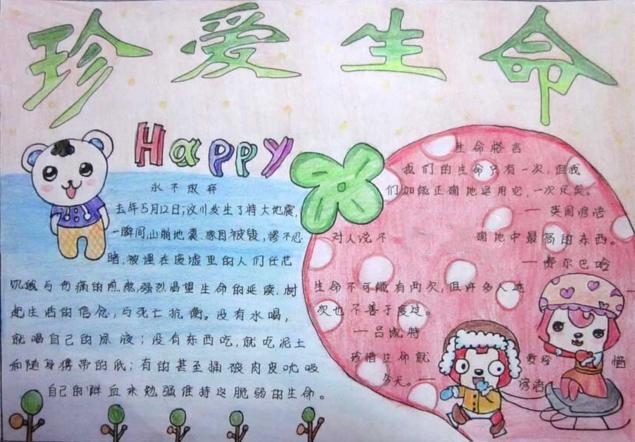 珍爱生命
Happy
永不放弃
去年5月12日,汶川发生了特大地震,
一瞬间,山崩地裂
睹,被埋在废墟里的人们在
与伤痛的煎熬,强烈渴望生命的延续,树
起生活的信念,与死亡抗衡。没有水喝,
就喝自己的尿液;没有东西吃,就吃泥土
和随身携带的纸;有的甚至抓破肉皮吮吸
自己的鲜血来勉强维持这脆弱的生命。
生命格言
我们的生命只有一次,但我
们如能正确地运用它,一次足矣。
— 英国谚语
对人说不 确地中最 的东西。
— 费尔巴哈
生命不可能有两次,但许多人连
次也不善于度过。
— 吕凯特
珍惜生命就 要珍 惜
今天。 — 谚语